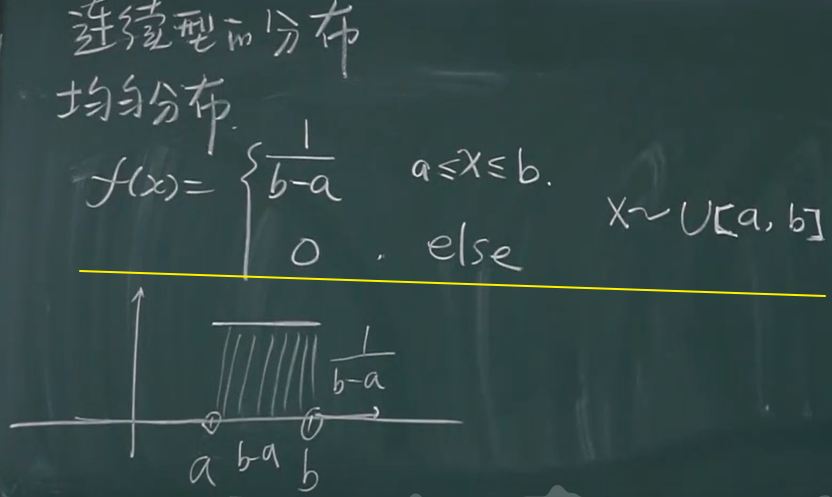 连续型的分布
均匀分布.
f(x)= { 1/(b-a)  a≤x≤b.
0 . else
X~U[a, b]
1/(b-a)
a b-a b